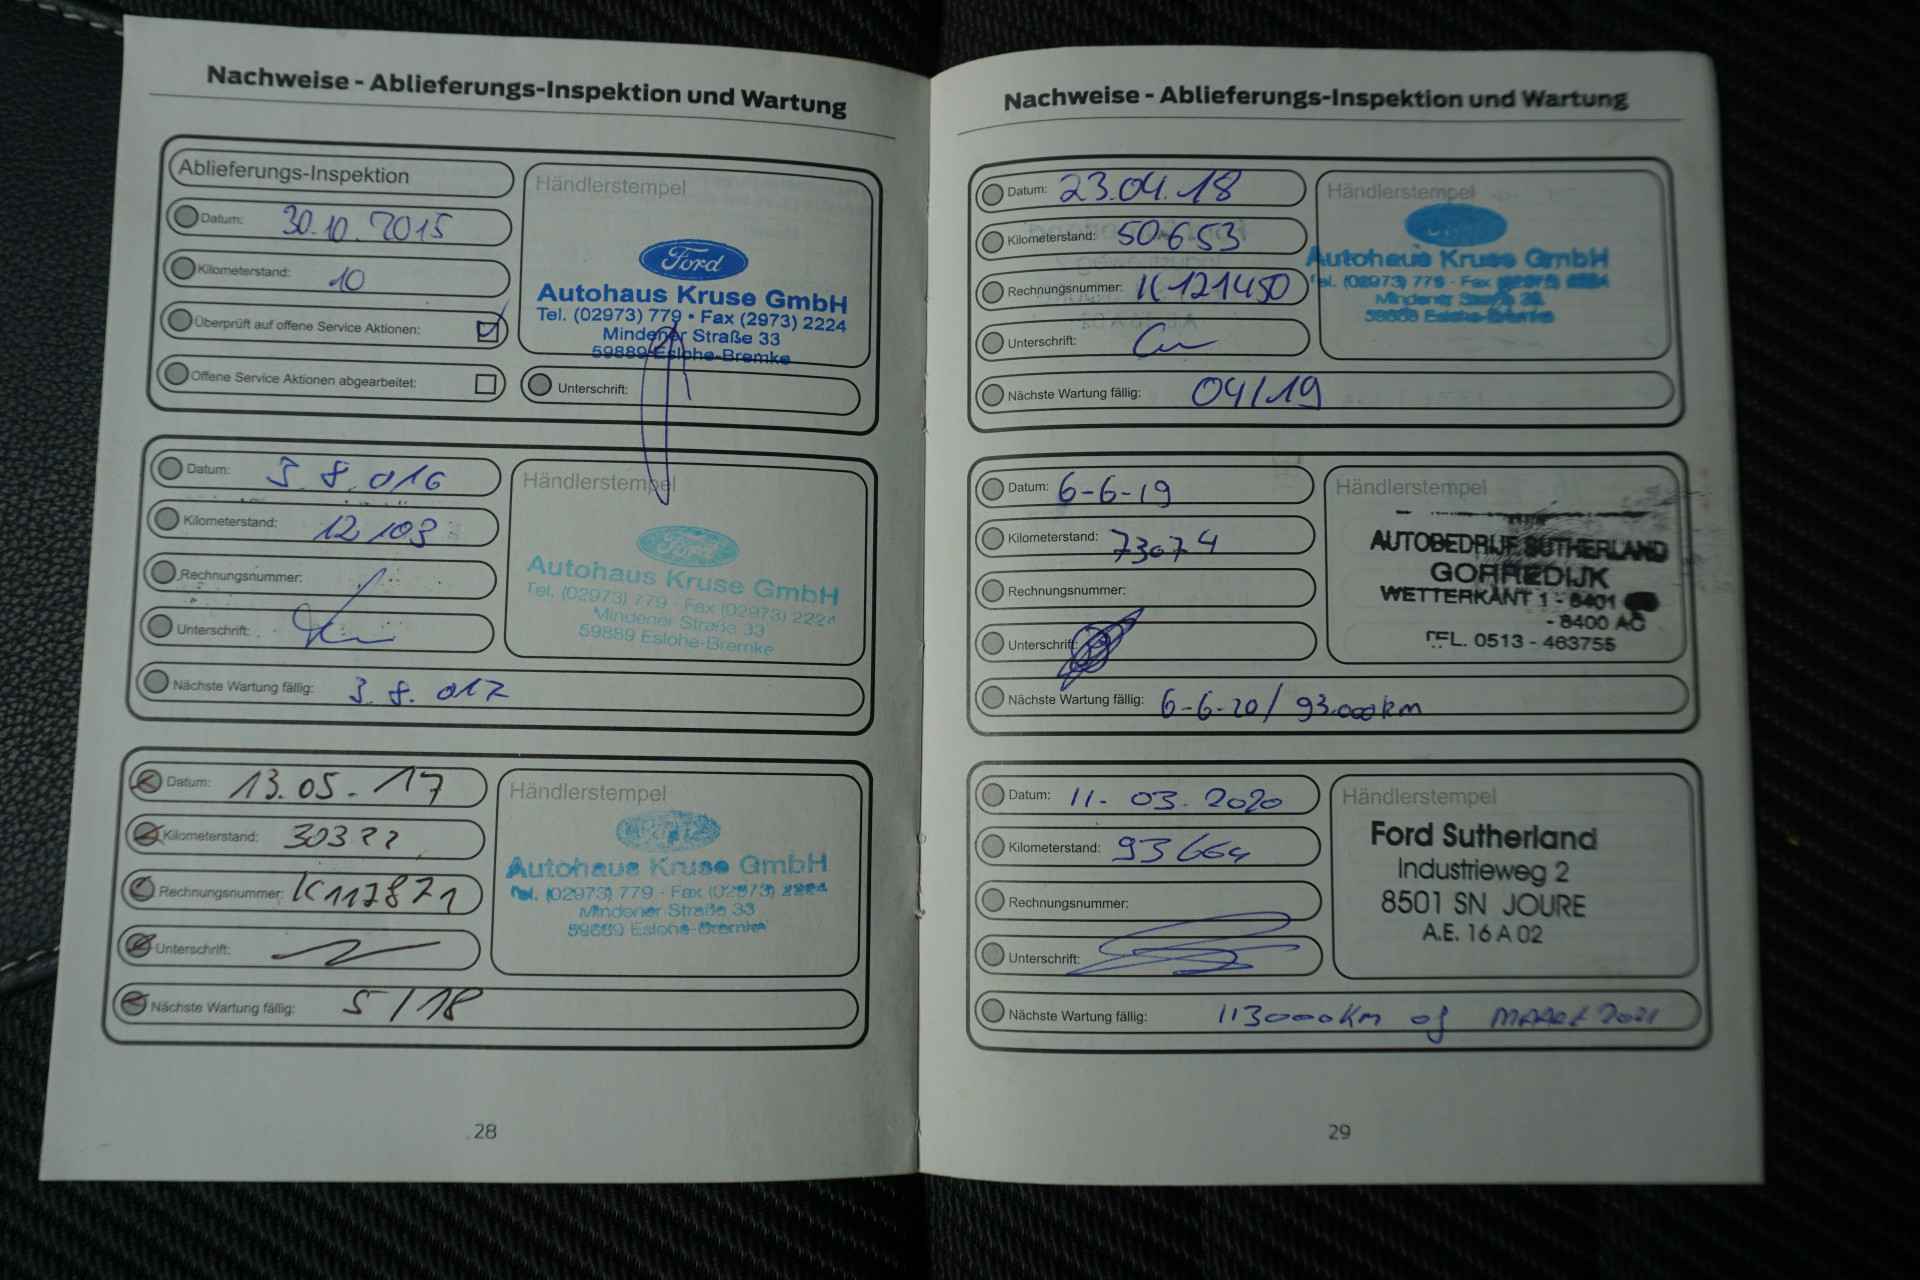 Nachweise - Ablieferungs-Inspektion und Wartung
Ablieferungs-Inspektion
Datum: 30.10.2015
Kilometerstand: 10
Überprüft auf offene Service Aktionen:
Offene Service Aktionen abgearbeitet:
Händlerstempel
Ford
Autohaus Kruse GmbH
Tel. (02973) 779 • Fax (2973) 2224
Mindener Straße 33
59889 Eslohe-Bremke
Unterschrift:
Datum: 3.8.016
Kilometerstand: 12103
Rechnungsnummer:
Unterschrift:
Händlerstempel
Ford
Autohaus Kruse GmbH
Tel. (02973) 779 - Fax (02973) 2224
Mindener Straße 33
59889 Eslohe-Bremke
Nächste Wartung fällig: 3.8.017
Datum: 13.05.-17
Kilometerstand: 30322
Rechnungsnummer: K117871
Unterschrift:
Händlerstempel
Autohaus Kruse GmbH
Tel. (02973) 779 - Fax (02973) 2224
Mindener Straße 33
59889 Eslohe-Bremke
Nächste Wartung fällig: 5/18
28
Nachweise - Ablieferungs-Inspektion und Wartung
Datum: 23.04.18
Kilometerstand: 50653
Rechnungsnummer: K121450
Unterschrift:
Händlerstempel
Autohaus Kruse GmbH
Tel. (02973) 779 - Fax
Mindener Straße
59889 Eslohe-Bremke
Nächste Wartung fällig: 04/19
Datum: 6-6-19
Kilometerstand: 73074
Rechnungsnummer:
Unterschrift:
Händlerstempel
AUTOBEDRIJF SUTHERLAND
GORREDIJK
WETTERKANT 1 - 8401
- 8400 AC
TEL. 0513 - 463755
Nächste Wartung fällig: 6-6-20/ 93.000km
Datum: 11-03.2020
Kilometerstand: 93664
Rechnungsnummer:
Unterschrift:
Händlerstempel
Ford Sutherland
Industrieweg 2
8501 SN JOURE
A.E. 16 A 02
Nächste Wartung fällig: 113000km of MAART 2021
29